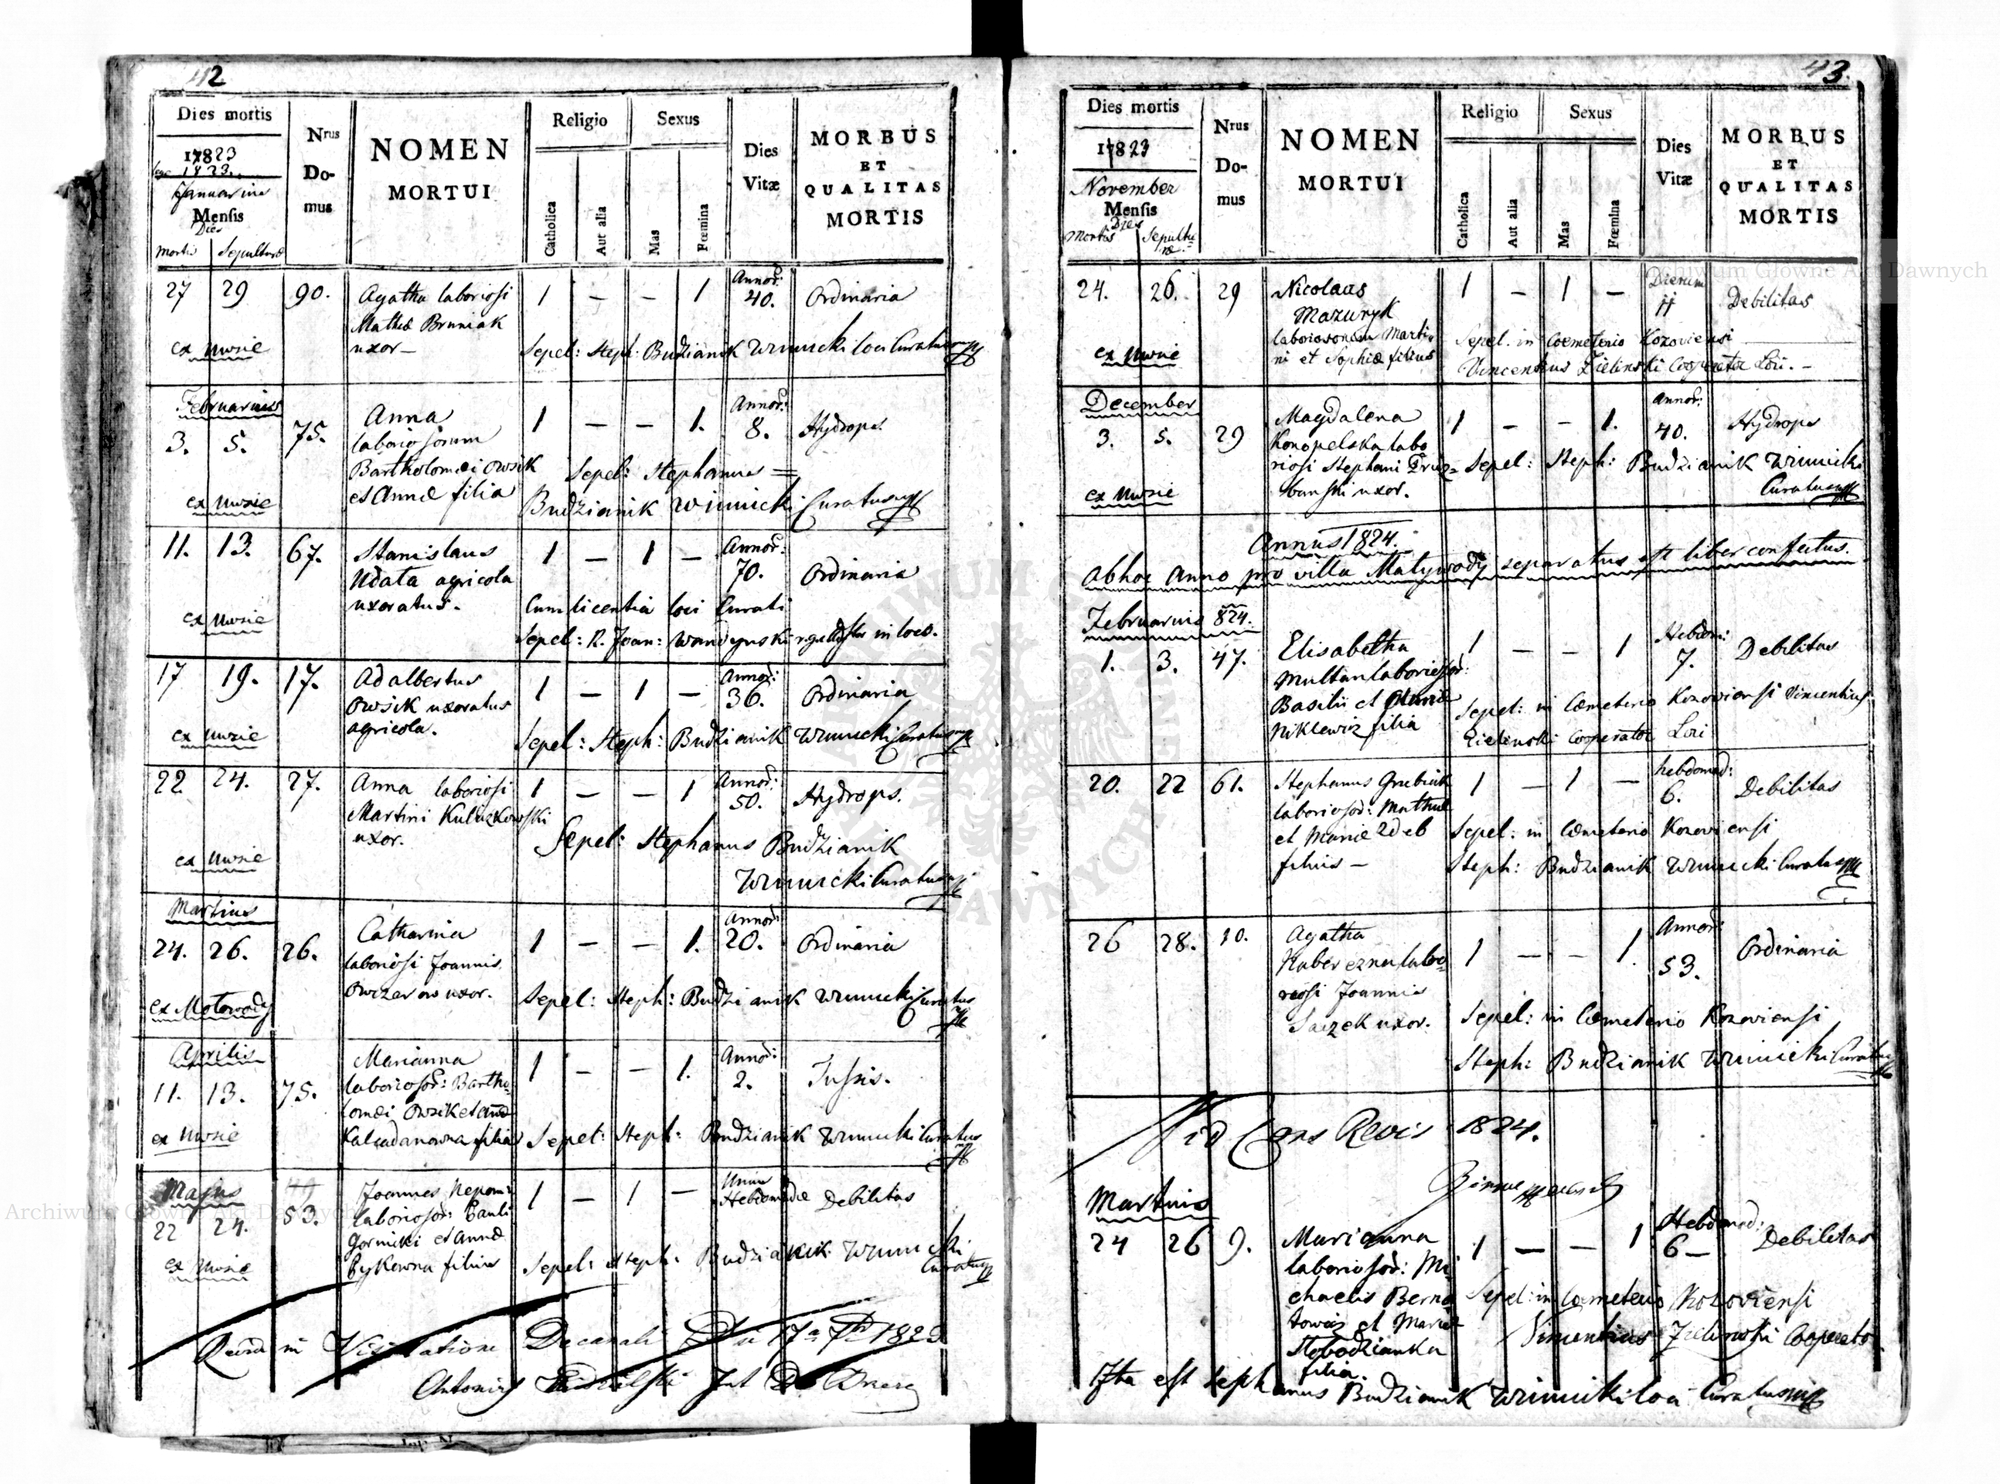 42
Dies mortis
Nrus Do- mus
NOMEN
MORTUI
Religio
Sexus
Catholica
Aut alia
Mas
Fœmina
Dies
Vitæ
MORBUS
ET
QUALITAS
MORTIS
17823
1823.
Januarius
Mensis
Dies
Mortis Sepulturæ
27 29 90. Agatha laboriosi 1 — — 1 Annor: 40. Ordinaria
Mathiæ Bruniak
ex Uwsie uxor — Sepel: Steph: Budzianik Winnicki loci Curatus
Februarius
3. 5. 75. Anna 1 — — 1. Annor: 8. Hydrops
laboriosorum
Bartholomæi Owsik Sepel: Stephanus =
ex Uwsie et Annæ filia Budzianik Winnicki Curatus
11. 13. 67. Stanislaus 1 — 1 — Annor: 70. Ordinaria
Udata agricola
uxoratus. Cum licentia loci Curati
ex Uwsie Sepel: R. Joan: in loco.
17 19. 17. Adalbertus 1 — 1 — Annor: 36. Ordinaria
Owsik uxoratus
ex Uwsie agricola. Sepel: Steph: Budzianik Winnicki Curatus
22 24. 27. Anna laboriosi 1 — — 1 Annor: 50. Hydrops.
Martini
uxor. Sepel: Stephanus Budzianik
ex Uwsie Winnicki Curatus
Martius
24. 26. 26. Catharina 1 — — 1. Annor: 20. Ordinaria
laboriosi Joannis
Owczarow uxor. Sepel: Steph: Budzianik Winnicki Curatus
ex Motowody
Aprilis
11. 13. 75. Marianna 1 — — 1. Annor: 2. Tussis.
laboriosor: Bartho
lomæi Owsik et Annæ
ex Uwsie filia Sepel: Steph: Budzianik Winnicki Curatus
Majus
22 24. 53. Joannes Nepom: 1 — 1 — Unius Hebdomadæ Debilitas
laboriosor: Pauli
Gornicki et Annæ
ex Uwsie Bykowna filius Sepel: Steph: Budzianik Winnicki Curatus
in Visitatione Decanali
Antonius
43.
Dies mortis
Nrus Do- mus
NOMEN
MORTUI
Religio
Sexus
Catholica
Aut alia
Mas
Fœmina
Dies
Vitæ
MORBUS
ET
QUALITAS
MORTIS
17823
November
Mensis
Dies
Mortis Sepultu-
ræ
24. 26. 29 Nicolaus 1 — 1 — Dierum 11 Debilitas
Mazuryk
laboriosorum Marti- Sepel. in Cœmeterio Kozoviensi
ex Uwsie ni et Sophiæ filius Vincentius Zielinski Cooperator Loci. —
December
3. 5. 29 Magdalena 1 — — 1. Annor: 40. Hydrops
Konopelska labo
riosi Stephani Sepel: Steph: Budzianik Winnicki
ex Uwsie uxor. Curatus
Annus 1824.
Abhoc Anno pro villa Matywody separatus est liber confectus.
Februarius 824.
1. 3. 47. Elisabetha 1 — — 1 Hebdom: 7. Debilitas
Multan laboriosor:
Basilii et Sepel: in Cœmeterio Kozoviensi Vincentius
Niklewicz filia Zielinski Cooperator Loci
20. 22 61. Stephanus 1 — 1 — hebdomad: 6. Debilitas
laboriosor:
et Mariæ Sepel: in Cœmeterio Kozoviensi
filius — Steph: Budzianik Winnicki Curatus
26 28. 10. Agatha 1 — — 1. Annor: 53. Ordinaria
labo-
riosi Joannis
uxor. Sepel: in Cœmeterio Kozoviensi
Steph: Budzianik Winnicki Curatus
Vid Cans Revis 1824.
Martius
24 26 9. Marianna 1 — — 1 Hebdomad: 6 — Debilitas
laboriosor: Mi
chaelis Berna Sepel: in Cœmeterio Kozoviensi
towicz et Mariæ Vincentius Zielinski Cooperator
Slobodzianka
filia.
Ita est Stephanus Budzianik Winnicki loci Curatus
Archiwum Główne Akt Dawnych
Archiwum Główne Akt Dawnych